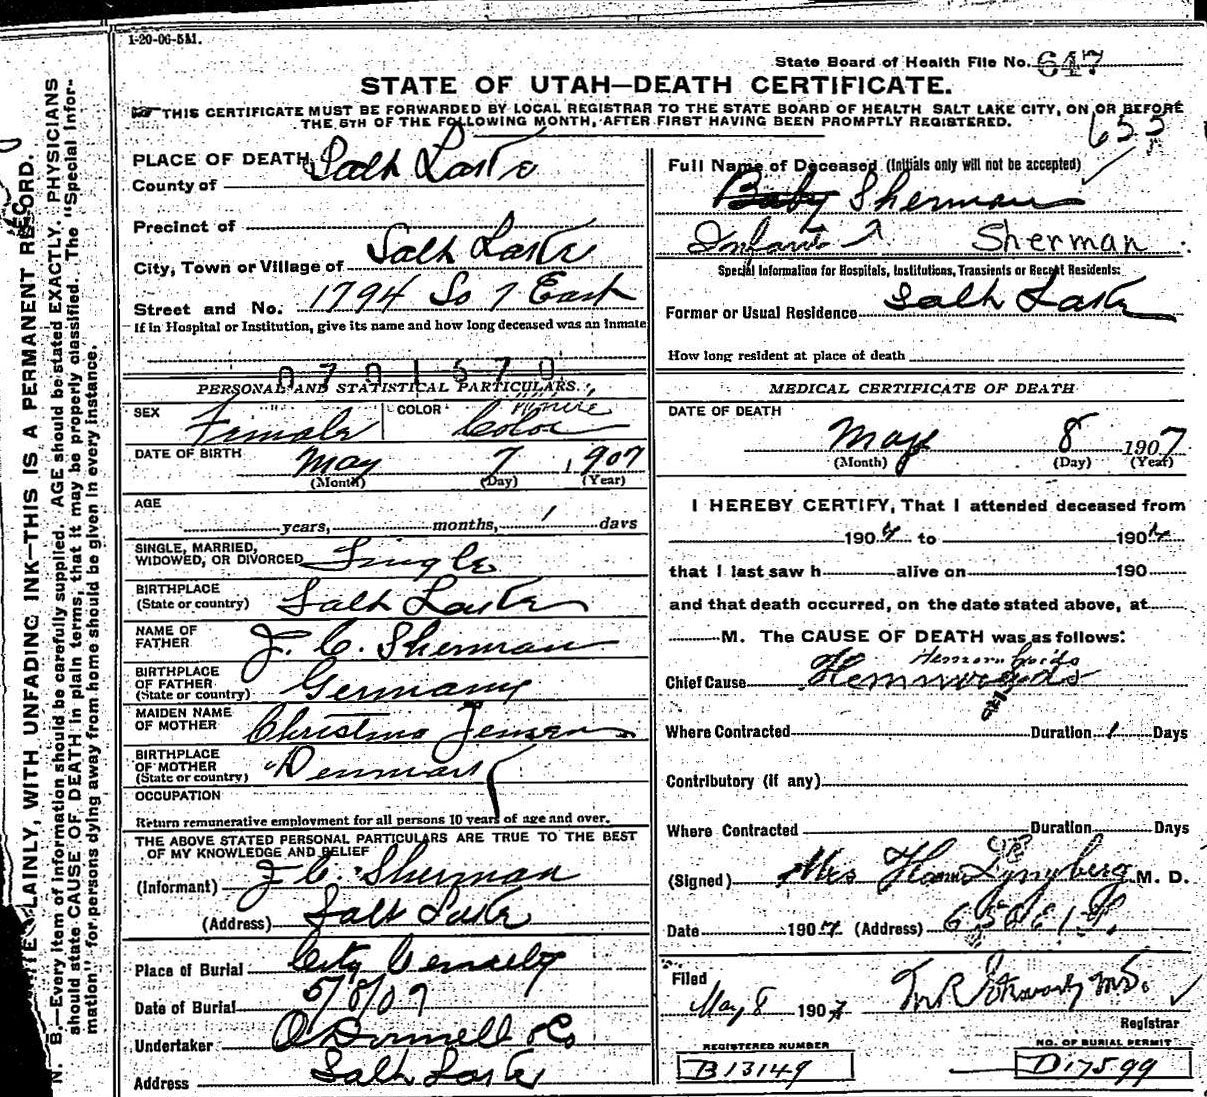 1-20-06-5M.
State Board of Health File No. 647
STATE OF UTAH—DEATH CERTIFICATE.
THIS CERTIFICATE MUST BE FORWARDED BY LOCAL REGISTRAR TO THE STATE BOARD OF HEALTH SALT LAKE CITY, ON OR BEFORE
THE 5TH OF THE FOLLOWING MONTH, AFTER FIRST HAVING BEEN PROMPTLY REGISTERED.
653
PLACE OF DEATH,
County of Salt Lake
Precinct of
City, Town or Village of Salt Lake
Street and No. 1794 So 7 East
If in Hospital or Institution, give its name and how long deceased was an inmate
0701570
PERSONAL AND STATISTICAL PARTICULARS.
SEX Female COLOR White Color
DATE OF BIRTH May 7, 1907
(Month) (Day) (Year)
AGE
years, months, 1 days
SINGLE, MARRIED,
WIDOWED, OR DIVORCED Single
BIRTHPLACE
(State or country) Salt Lake
NAME OF
FATHER J. C. Sherman
BIRTHPLACE
OF FATHER
(State or country) Germany
MAIDEN NAME
OF MOTHER Christina Jensen
BIRTHPLACE
OF MOTHER
(State or country) Denmark
OCCUPATION
Return remunerative employment for all persons 10 years of age and over.
THE ABOVE STATED PERSONAL PARTICULARS ARE TRUE TO THE BEST
OF MY KNOWLEDGE AND BELIEF
(Informant) J C. Sherman
(Address) Salt Lake
Place of Burial City Cemetery
Date of Burial 5/8/07
Undertaker O'Donnell & Co
Address Salt Lake
Full Name of Deceased (Initials only will not be accepted)
Baby Sherman
Infant Sherman
Special Information for Hospitals, Institutions, Transients or Recent Residents:
Former or Usual Residence Salt Lake
How long resident at place of death
MEDICAL CERTIFICATE OF DEATH
DATE OF DEATH
May 8 1907
(Month) (Day) (Year)
I HEREBY CERTIFY, That I attended deceased from
190 to 190
that I last saw h alive on 190
and that death occurred, on the date stated above, at
M. The CAUSE OF DEATH was as follows:
Chief Cause
Where Contracted Duration 1 Days
Contributory (if any)
Where Contracted Duration Days
(Signed) Mrs M. D.
Date 1907 (Address)
Filed
May 8 1907
Registrar
REGISTERED NUMBER
B13149
NO. OF BURIAL PERMIT
D17599
WRITE PLAINLY, WITH UNFADING INK—THIS IS A PERMANENT RECORD.
N. B.—Every item of information should be carefully supplied. AGE should be stated EXACTLY. PHYSICIANS
should state CAUSE OF DEATH in plain terms, that it may be properly classified. The "Special Infor-
mation" for persons dying away from home should be given in every instance.